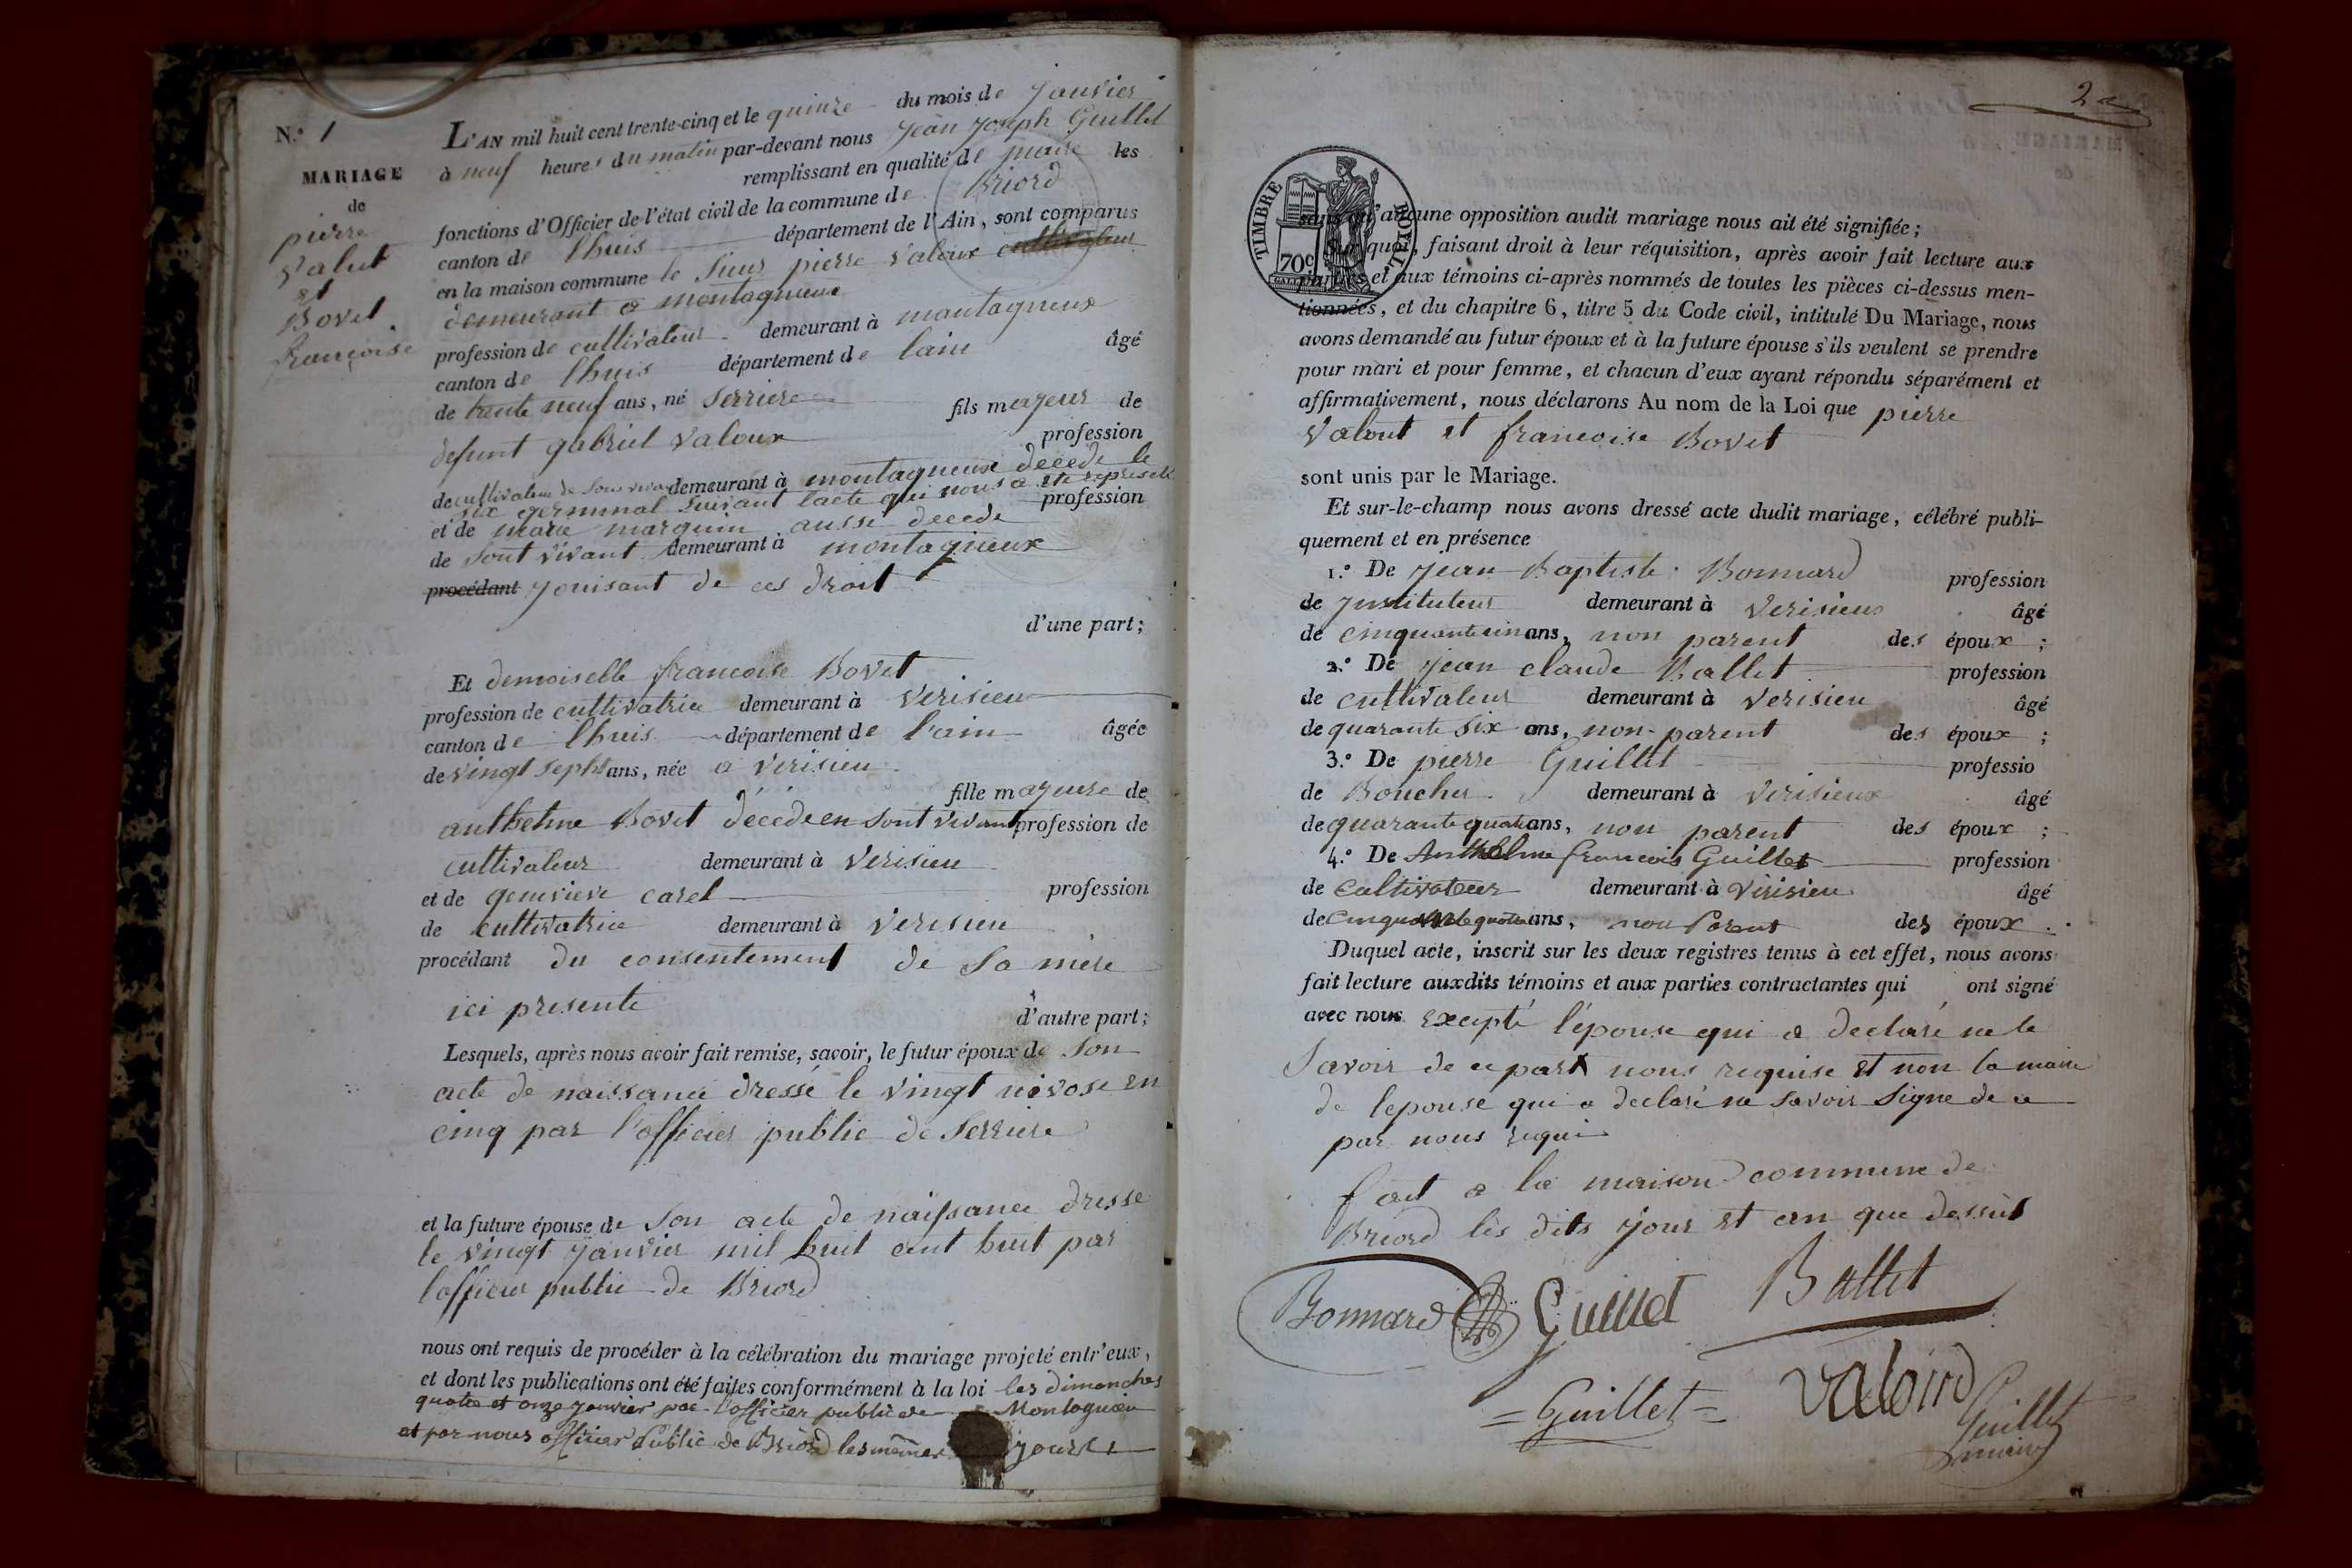 N.° 1
MARIAGE
de
pierre
Valut
et
Bovet
françoise
L'AN mil huit cent trente-cinq et le quinze du mois de Janvier
à neuf heures du matin par-devant nous Jean Joseph Guillet
remplissant en qualité de maire les
fonctions d'Officier de l'état civil de la commune de Briord
canton de lhuis département de l'Ain, sont comparus
en la maison commune le Sieur pierre Valoux cultivateur
demeurant a montagnieux
profession de cultivateur demeurant à montagneux
canton de lhuis département de lain âgé
de trente neuf ans, né Serriere fils majeur de
defunt gabriel Valoux profession
de cultivateur de son vivan demeurant à montagneux decede le
six germinal suivant lacte qui nous a ete represete
et de marie marguin aussi decede profession
de sont vivant demeurant à montagnieux
procédant jouisant de ces droit
d'une part;
Et demoiselle francoise Bovet
profession de cultivatrice demeurant à Verisieu
canton de lhuis département de l'ain âgée
de vingt sept ans, née a Verisieu
fille majeure de
anthelme Bovet décédé en sont vivant profession de
cultivateur demeurant à Verisieu
et de genevieve carel profession
de cultivatrice demeurant à Verisieu
procédant du consentement de sa mère
ici presente
d'autre part;
Lesquels, après nous avoir fait remise, savoir, le futur époux de son
acte de naissance dressé le vingt nivose en
cinq par l'officier public de Serriere
et la future épouse de son acte de naissance dresse
le vingt janvier mil huit cent huit par
lofficier public de Briord
nous ont requis de procéder à la célébration du mariage projeté entr'eux,
et dont les publications ont été faites conformément à la loi les dimanches
quatre et onze janvier par l'officier public de Montagnieu
et par nous officier Public de Briord les mêmes jours
2
TIMBRE ROYAL
70c
sans qu'aucune opposition audit mariage nous ait été signifiée;
Sur quoi, faisant droit à leur réquisition, après avoir fait lecture aux
parties et aux témoins ci-après nommés de toutes les pièces ci-dessus men-
tionnées, et du chapitre 6, titre 5 du Code civil, intitulé Du Mariage, nous
avons demandé au futur époux et à la future épouse s'ils veulent se prendre
pour mari et pour femme, et chacun d'eux ayant répondu séparément et
affirmativement, nous déclarons Au nom de la Loi que pierre
Valout et francoise Bovet
sont unis par le Mariage.
Et sur-le-champ nous avons dressé acte dudit mariage, célébré publi-
quement et en présence
1.° De Jean Baptiste Bonnard profession
de Instituteur demeurant à Verisieux âgé
de cinquante cin ans, non parent des époux ;
2.° De Jean claude Ballet profession
de cultivateur demeurant à Verisieu âgé
de quarante six ans, non parent des époux ;
3.° De pierre Guillet professio
de Boucher demeurant à Verisieux âgé
de quarante quatre ans, non parent des époux ;
4.° De Anthelme francois Guillet profession
de Cultivateur demeurant à Virisieu âgé
de Cinquante quatre ans, non Parent des époux .
Duquel acte, inscrit sur les deux registres tenus à cet effet, nous avons
fait lecture auxdits témoins et aux parties contractantes qui ont signé
avec nous Excepté l'épouse qui a declaré ne le
Savoir de ce part nous requise et non la maire
de lepouse qui a declaré ne savoir signe de ce
par nous requi
fait a la maison commune de
Briord les dits jour et an que dessus
Bonnard Guillet Ballet
Guillet Valoud Guillet
maire